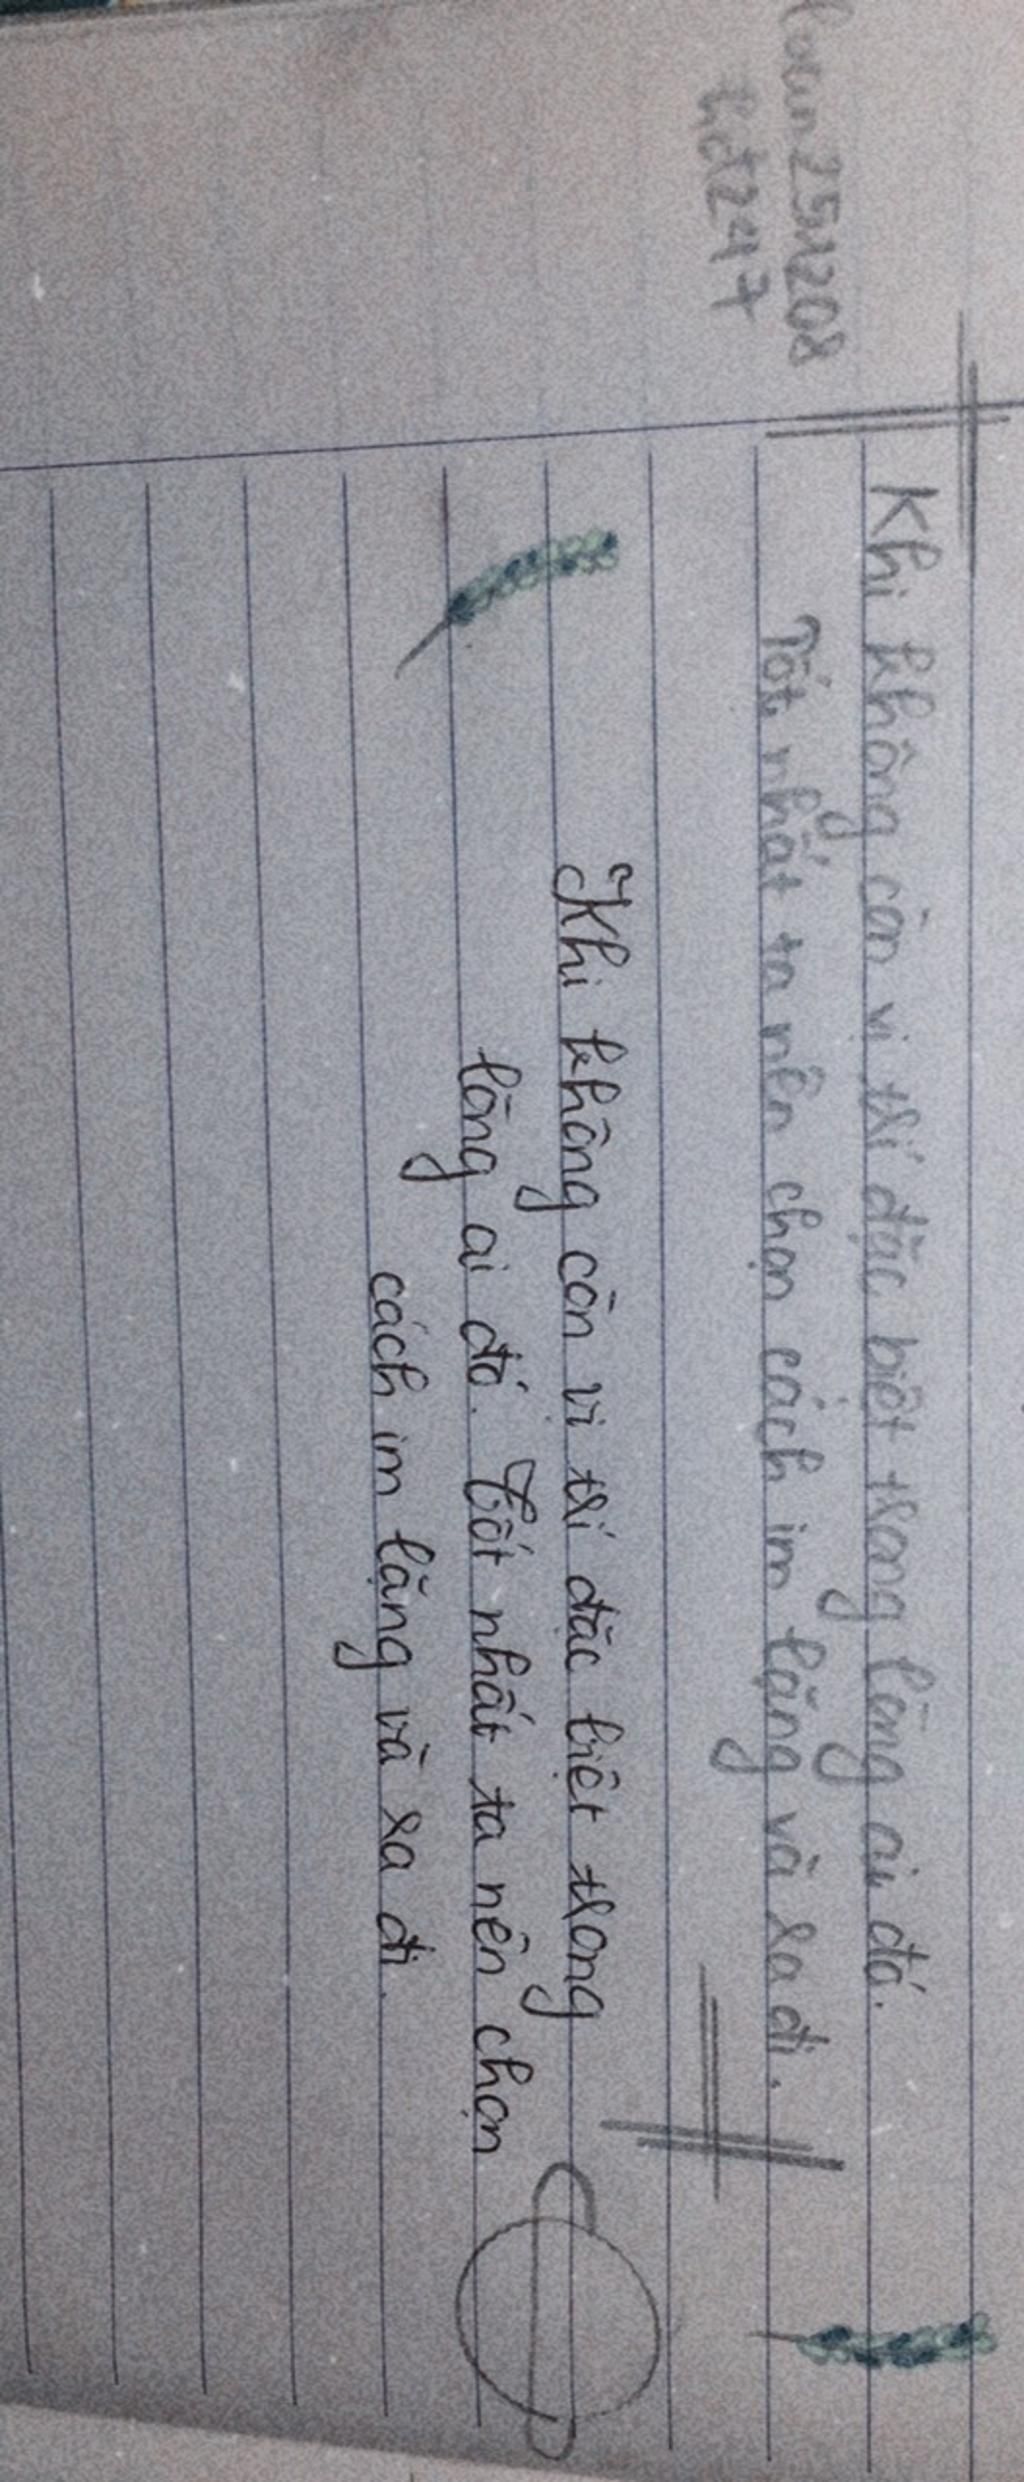 251208
tiet247
Khi không còn vị trí đặc biệt trong lòng ai đó.
Tốt nhất ta nên chọn cách im lặng và ra đi.
Khi không còn vị trí đặc biệt trong
lòng ai đó. Tốt nhất ta nên chọn
cách im lặng và ra đi.